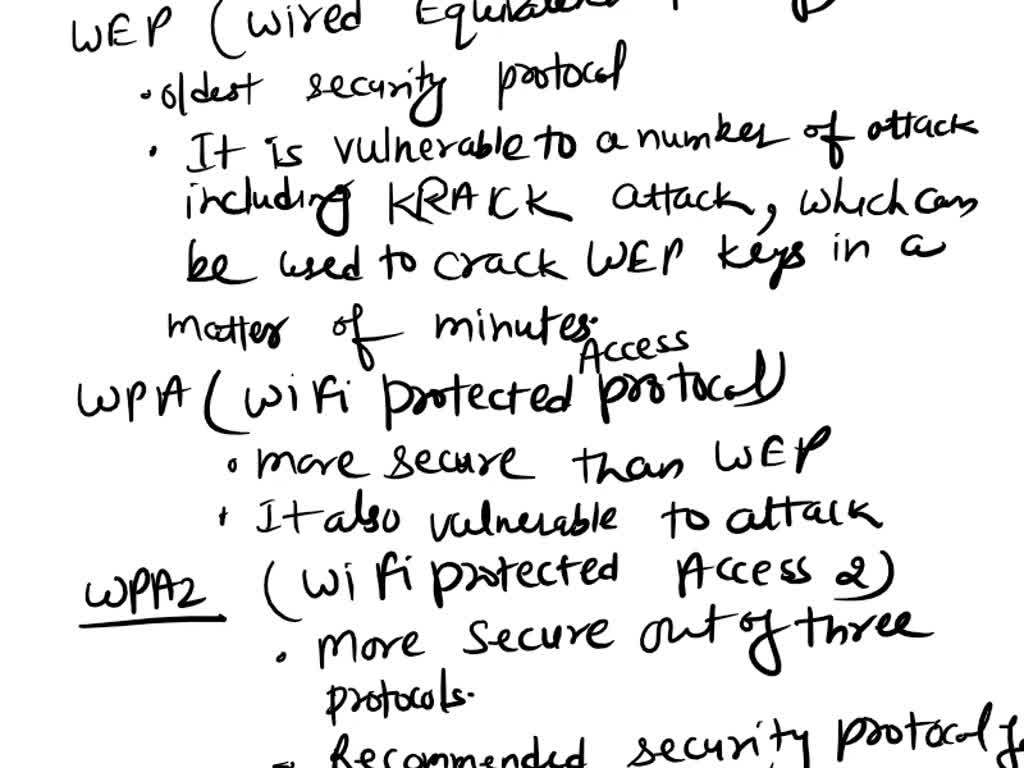 WEP (Wired Equivalent
• oldest security protocol
• It is vulnerable to a number of attack
including KRACK attack, which can
be used to crack WEP keys in a
matter of minutes.
Access
WPA (WiFi protected protocol)
• more secure than WEP
• It also vulnerable to attack
WPA2 (WiFi protected Access 2)
• More secure out of three
protocols.
Recommended security protocol